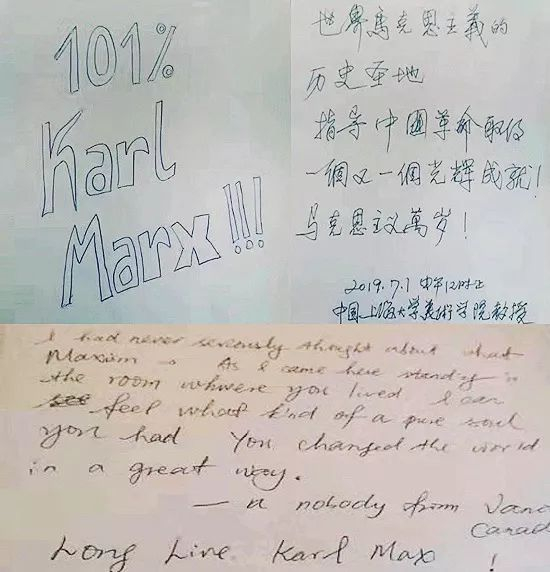 101%
Karl
Marx!!!
世界馬克思主義的
历史圣地
指导中國革命取得
一個又一個光輝成就!
马克思主义萬岁!
2019.7.1 中午12时正
中国上海大学美術学院教授
I had never seriously thought about what
Maxism. As I came here standing in
the room whwere you lived I can
feel what kind of a pure soul
you had You changed the world
in a great way.
— a nobody from Vanc
Canad
Long Live Karl Max !